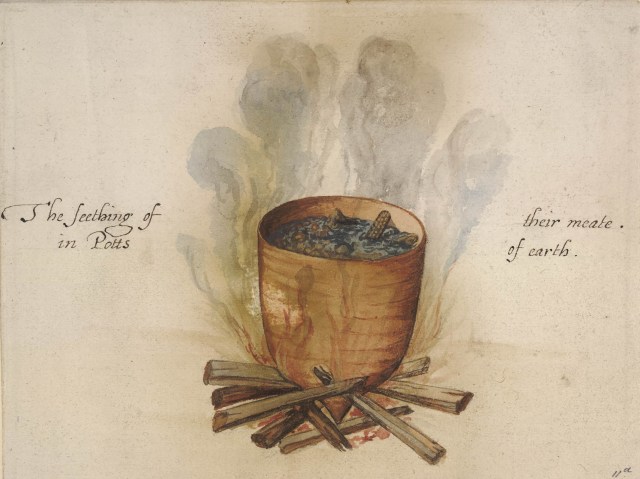 The seething of their meate.
in Potts of earth.
11